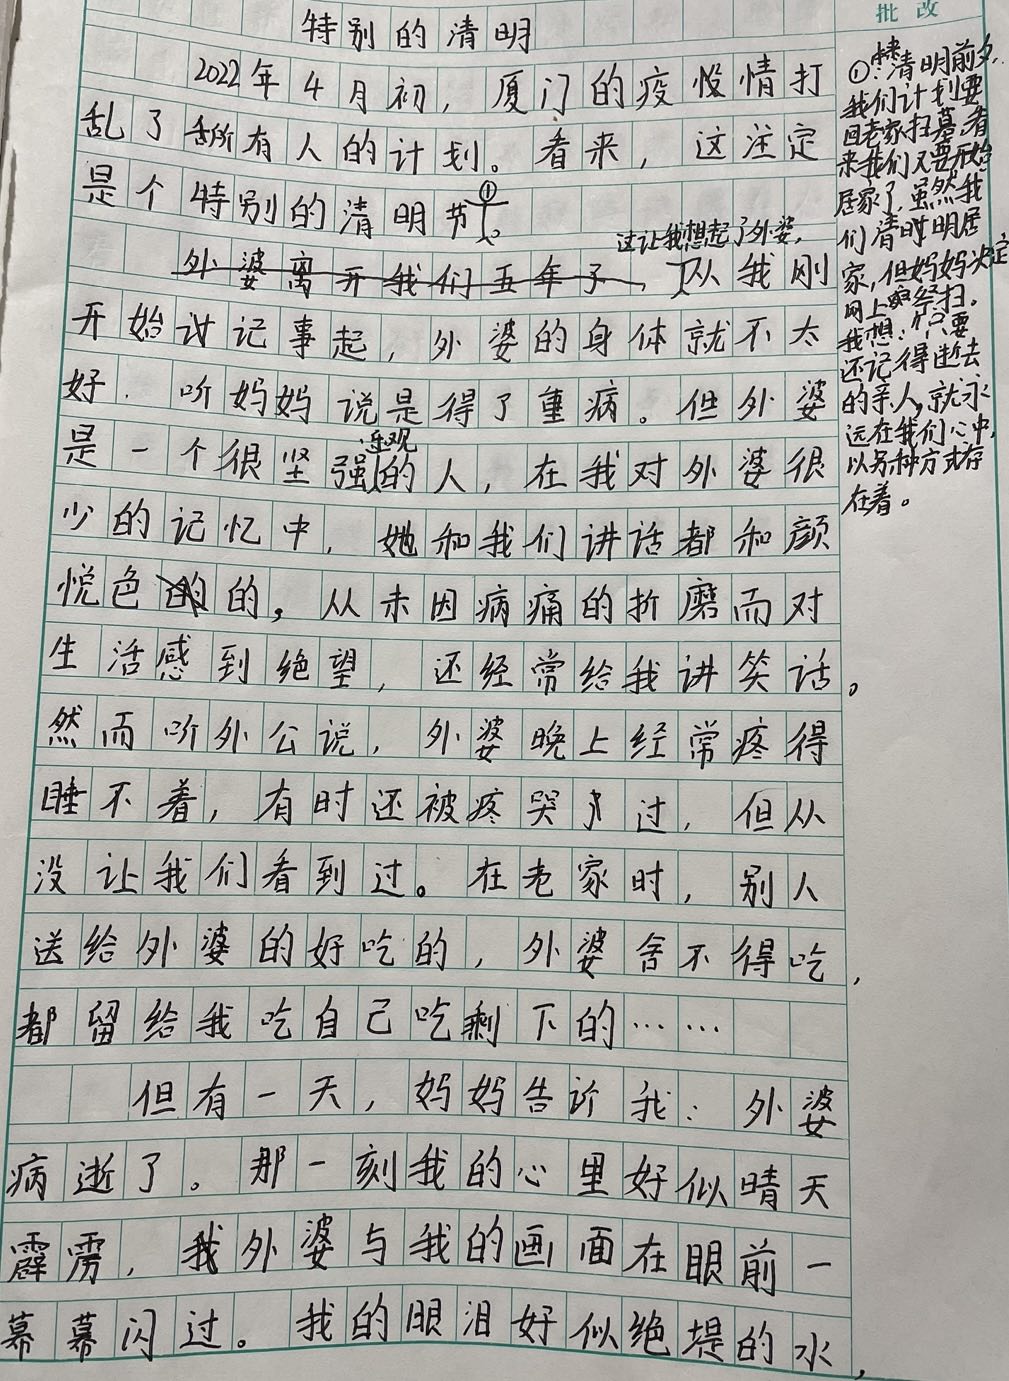 批改
特别的清明
2022年4月初，厦门的疫情打
乱了所有人的计划。看来，这注定
是个特别的清明节①。
这让我想起了外婆，
外婆离开我们五年了，从我刚
开始记事起，外婆的身体就不太
好．听妈妈说是得了重病。但外婆
乐观
是一个很坚强的人，在我对外婆很
少的记忆中，她和我们讲话都和颜
悦色的，从未因病痛的折磨而对
生活感到绝望，还经常给我讲笑话。
然而听外公说，外婆晚上经常疼得
睡不着，有时还被疼哭过，但从
没让我们看到过。在老家时，别人
送给外婆的好吃的，外婆舍不得吃，
都留给我吃自己吃剩下的……
但有一天，妈妈告诉我：外婆
病逝了。那一刻我的心里好似晴天
霹雳，我外婆与我的画面在眼前一
幕幕闪过。我的眼泪好似绝堤的水，
①清明前夕，
我们计划要
回老家扫墓，看
来我们又要开始
居家了，虽然我
们清明居
家，但妈妈决定
网上祭扫。
我想：只要
还记得逝去
的亲人，就永
远在我们心中，
以另种方式存
在着。